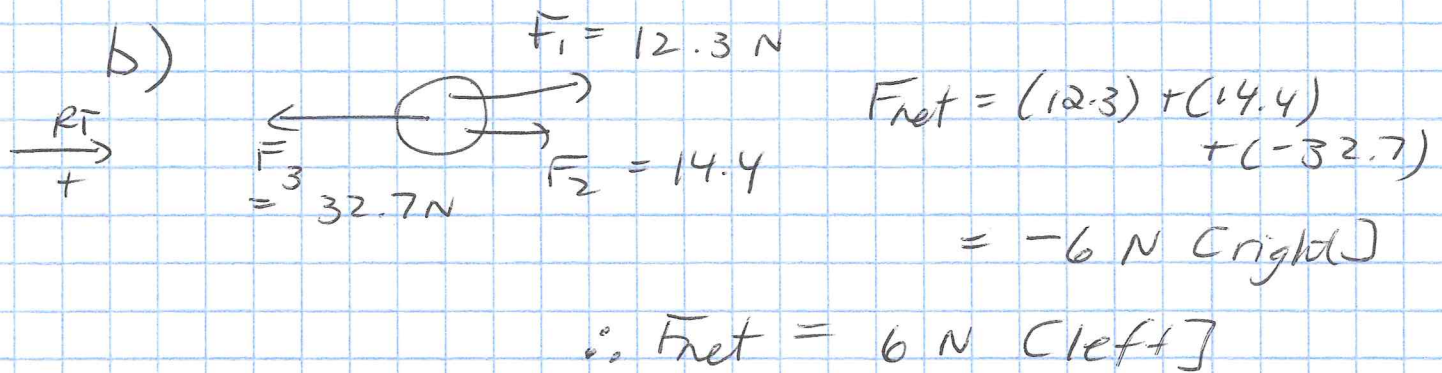 b)
RT
+
F₁ = 12.3 N
F₂ = 14.4
F₃
= 32.7N
Fnet = (12.3) + (14.4)
+ (-32.7)
= -6 N [right]
∴ Fnet = 6 N [left]